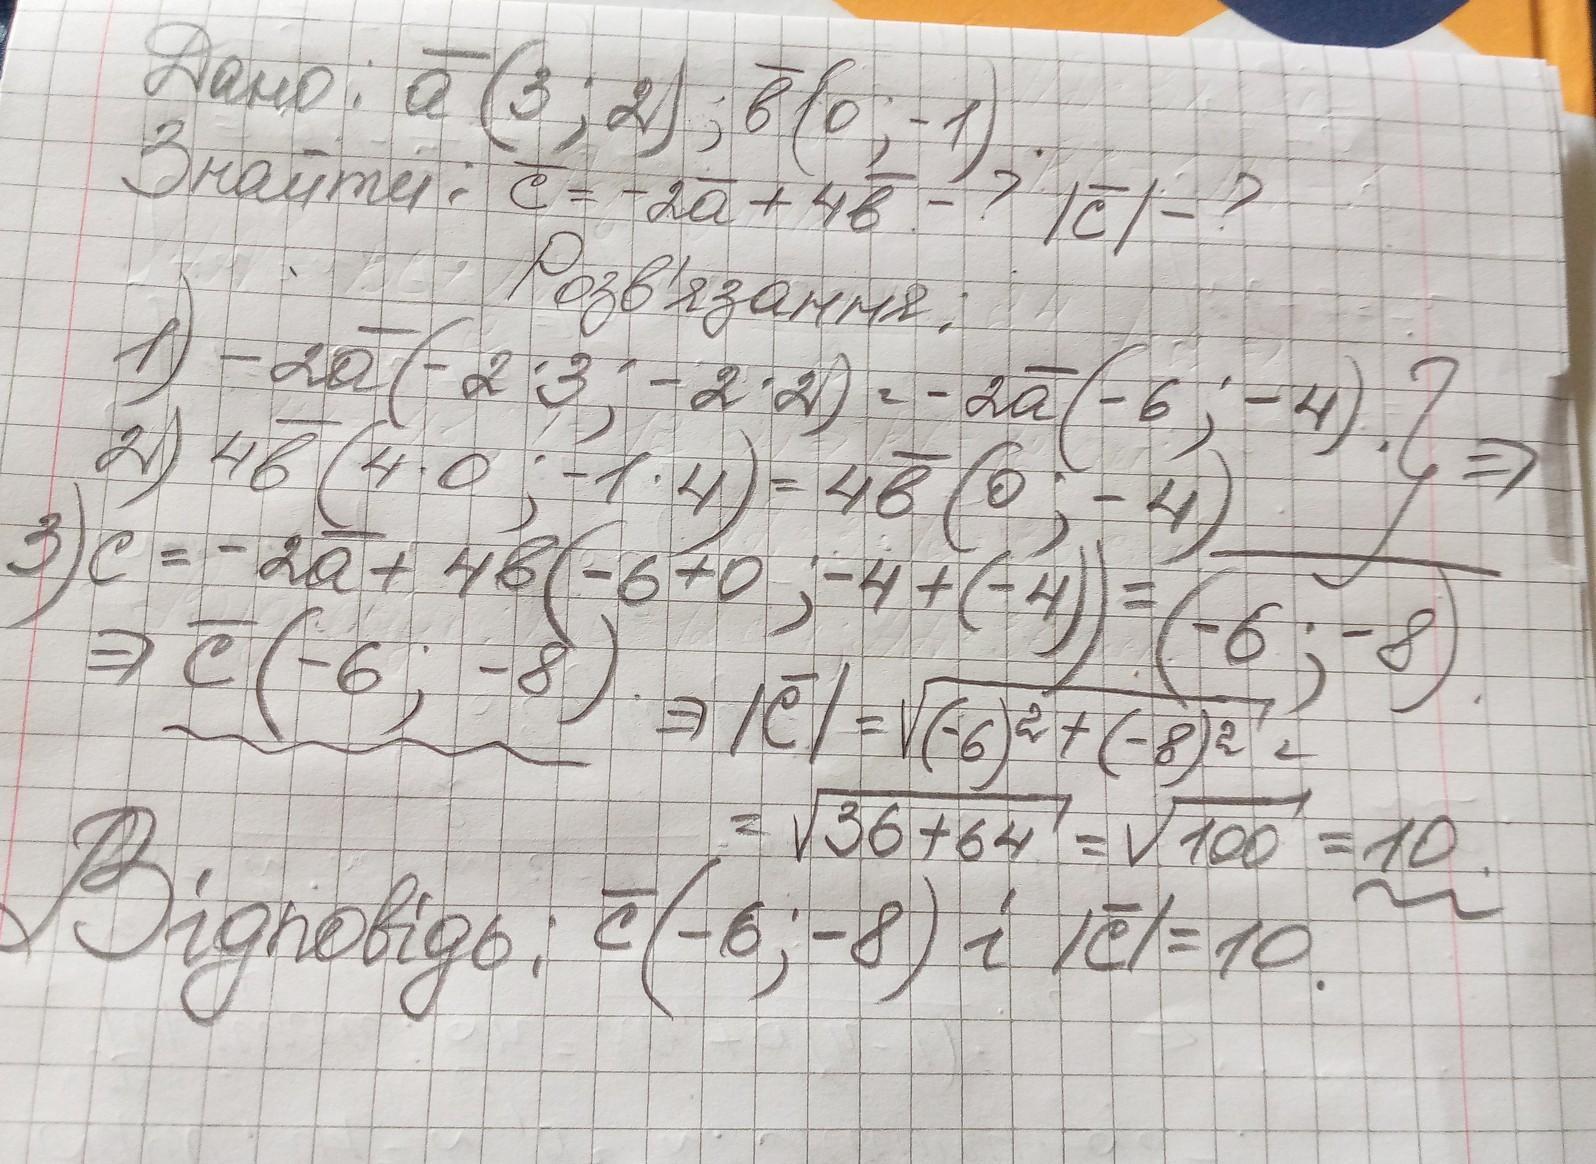 Дано: a̅ (3 ; 2) ; b̅ (0 ; -1).
Знайти: c̅ = -2a̅ + 4b̅ - ? |c̅| - ?
Розв'язання:
1) -2a̅ (-2·3 ; -2·2) = -2a̅ (-6 ; -4). } ⇒
2) 4b̅ (4·0 ; -1·4) = 4b̅ (0 ; -4)
3) c = -2a̅ + 4b (-6+0 ; -4+(-4)) = (-6 ; -8).
⇒ c̅ (-6 ; -8). ⇒ |c̅| = √((-6)² + (-8)²) =
= √(36+64) = √100 = 10.
Відповідь: c̅ (-6 ; -8) і |c̅| = 10.